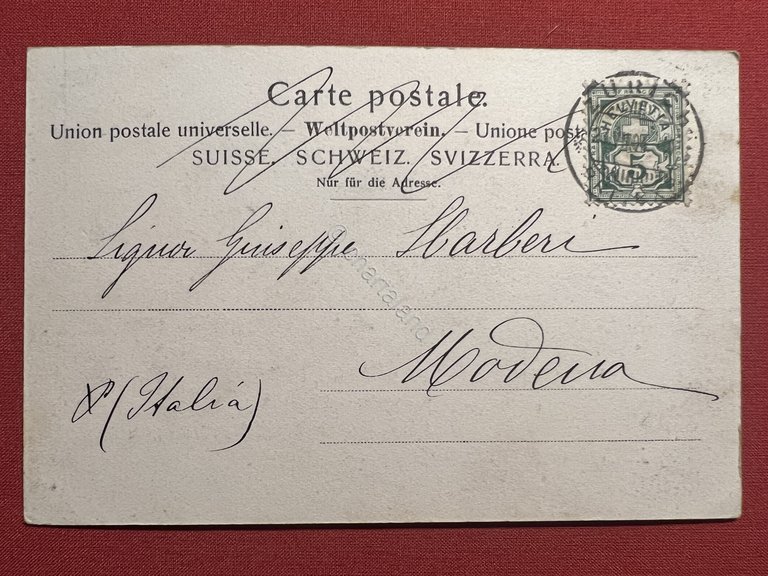 Carte postale.
Union postale universelle. — Weltpostverein. — Unione posta
SUISSE. SCHWEIZ. SVIZZERRA.
Nur für die Adresse.
5
Signor Guiseppe
Modena
(Italiá)